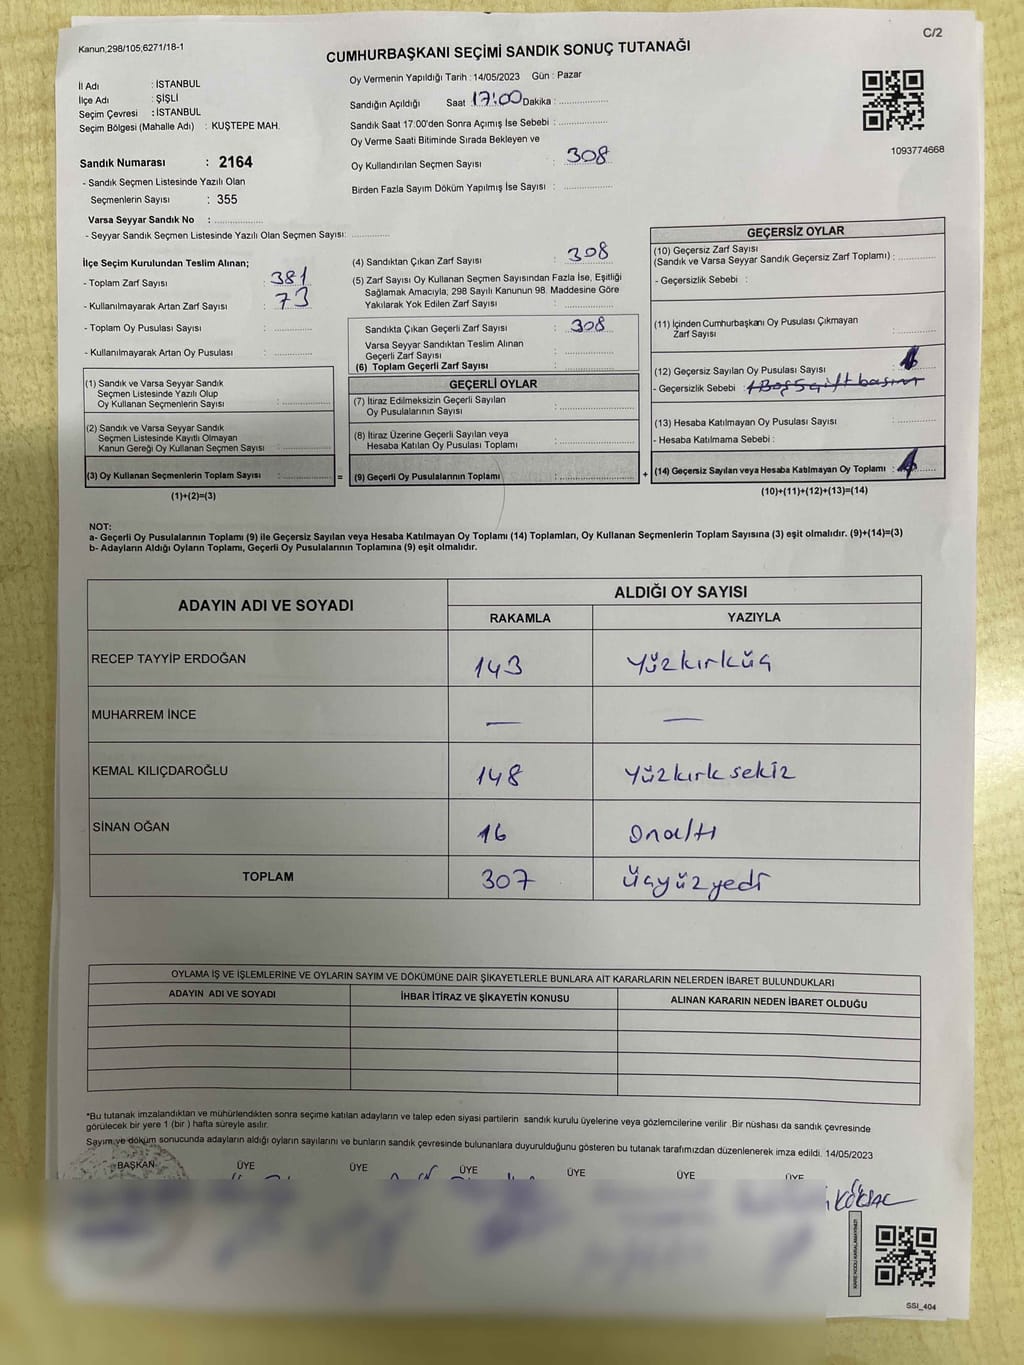 Kanun,298/105,6271/18-1
C/2
CUMHURBAŞKANI SEÇİMİ SANDIK SONUÇ TUTANAĞI
İl Adı : İSTANBUL
İlçe Adı : ŞİŞLİ
Seçim Çevresi : İSTANBUL
Seçim Bölgesi (Mahalle Adı) : KUŞTEPE MAH.
Sandık Numarası : 2164
- Sandık Seçmen Listesinde Yazılı Olan
Seçmenlerin Sayısı : 355
Varsa Seyyar Sandık No : ................
- Seyyar Sandık Seçmen Listesinde Yazılı Olan Seçmen Sayısı: .............
Oy Vermenin Yapıldığı Tarih : 14/05/2023 Gün : Pazar
Sandığın Açıldığı Saat 17:00 Dakika : ................
Sandık Saat 17:00'den Sonra Açımış İse Sebebi : ................
Oy Verme Saati Bitiminde Sırada Bekleyen ve
Oy Kullandırılan Seçmen Sayısı : 308
Birden Fazla Sayım Döküm Yapılmış İse Sayısı : ................
1093774668
İlçe Seçim Kurulundan Teslim Alınan;
- Toplam Zarf Sayısı : 381
- Kullanılmayarak Artan Zarf Sayısı : 73
- Toplam Oy Pusulası Sayısı : .............
- Kullanılmayarak Artan Oy Pusulası : .............
(1) Sandık ve Varsa Seyyar Sandık
Seçmen Listesinde Yazılı Olup
Oy Kullanan Seçmenlerin Sayısı : ................
(2) Sandık ve Varsa Seyyar Sandık
Seçmen Listesinde Kayıtlı Olmayan
Kanun Gereği Oy Kullanan Seçmen Sayısı : ................
(3) Oy Kullanan Seçmenlerin Toplam Sayısı : ................
(1)+(2)=(3)
(4) Sandıktan Çıkan Zarf Sayısı : 308
(5) Zarf Sayısı Oy Kullanan Seçmen Sayısından Fazla İse, Eşitliği
Sağlamak Amacıyla, 298 Sayılı Kanunun 98. Maddesine Göre
Yakılarak Yok Edilen Zarf Sayısı : ................
Sandıkta Çıkan Geçerli Zarf Sayısı : 308
Varsa Seyyar Sandıktan Teslim Alınan
Geçerli Zarf Sayısı : ................
(6) Toplam Geçerli Zarf Sayısı : ................
GEÇERLİ OYLAR
(7) İtiraz Edilmeksizin Geçerli Sayılan
Oy Pusulalarının Sayısı : ................
(8) İtiraz Üzerine Geçerli Sayılan veya
Hesaba Katılan Oy Pusulası Toplamı : ................
= (9) Geçerli Oy Pusulalarının Toplamı : ................
GEÇERSİZ OYLAR
(10) Geçersiz Zarf Sayısı
(Sandık ve Varsa Seyyar Sandık Geçersiz Zarf Toplamı) : ..........
- Geçersizlik Sebebi :
(11) İçinden Cumhurbaşkanı Oy Pusulası Çıkmayan
Zarf Sayısı : ..........
(12) Geçersiz Sayılan Oy Pusulası Sayısı :
- Geçersizlik Sebebi :
(13) Hesaba Katılmayan Oy Pusulası Sayısı : ..........
- Hesaba Katılmama Sebebi :
+ (14) Geçersiz Sayılan veya Hesaba Katılmayan Oy Toplamı : 1
(10)+(11)+(12)+(13)=(14)
NOT:
a- Geçerli Oy Pusulalarının Toplamı (9) ile Geçersiz Sayılan veya Hesaba Katılmayan Oy Toplamı (14) Toplamları, Oy Kullanan Seçmenlerin Toplam Sayısına (3) eşit olmalıdır. (9)+(14)=(3)
b- Adayların Aldığı Oyların Toplamı, Geçerli Oy Pusulalarının Toplamına (9) eşit olmalıdır.
ADAYIN ADI VE SOYADI
ALDIĞI OY SAYISI
RAKAMLA YAZIYLA
RECEP TAYYİP ERDOĞAN 143 Yüzkırküç
MUHARREM İNCE — —
KEMAL KILIÇDAROĞLU 148 Yüzkırk sekiz
SİNAN OĞAN 16 Onaltı
TOPLAM 307 Üçyüzyedi
OYLAMA İŞ VE İŞLEMLERİNE VE OYLARIN SAYIM VE DÖKÜMÜNE DAİR ŞİKAYETLERLE BUNLARA AİT KARARLARIN NELERDEN İBARET BULUNDUKLARI
ADAYIN ADI VE SOYADI İHBAR İTİRAZ VE ŞİKAYETİN KONUSU ALINAN KARARIN NEDEN İBARET OLDUĞU
*Bu tutanak imzalandıktan ve mühürlendikten sonra seçime katılan adayların ve talep eden siyasi partilerin sandık kurulu üyelerine veya gözlemcilerine verilir .Bir nüshası da sandık çevresinde
görülecek bir yere 1 (bir ) hafta süreyle asılır.
Sayım ve döküm sonucunda adayların aldığı oyların sayılarını ve bunların sandık çevresinde bulunanlara duyurulduğunu gösteren bu tutanak tarafımızdan düzenlenerek imza edildi. 14/05/2023
BAŞKAN ÜYE ÜYE ÜYE ÜYE ÜYE ÜYE
KÖKSAL
SSI_404